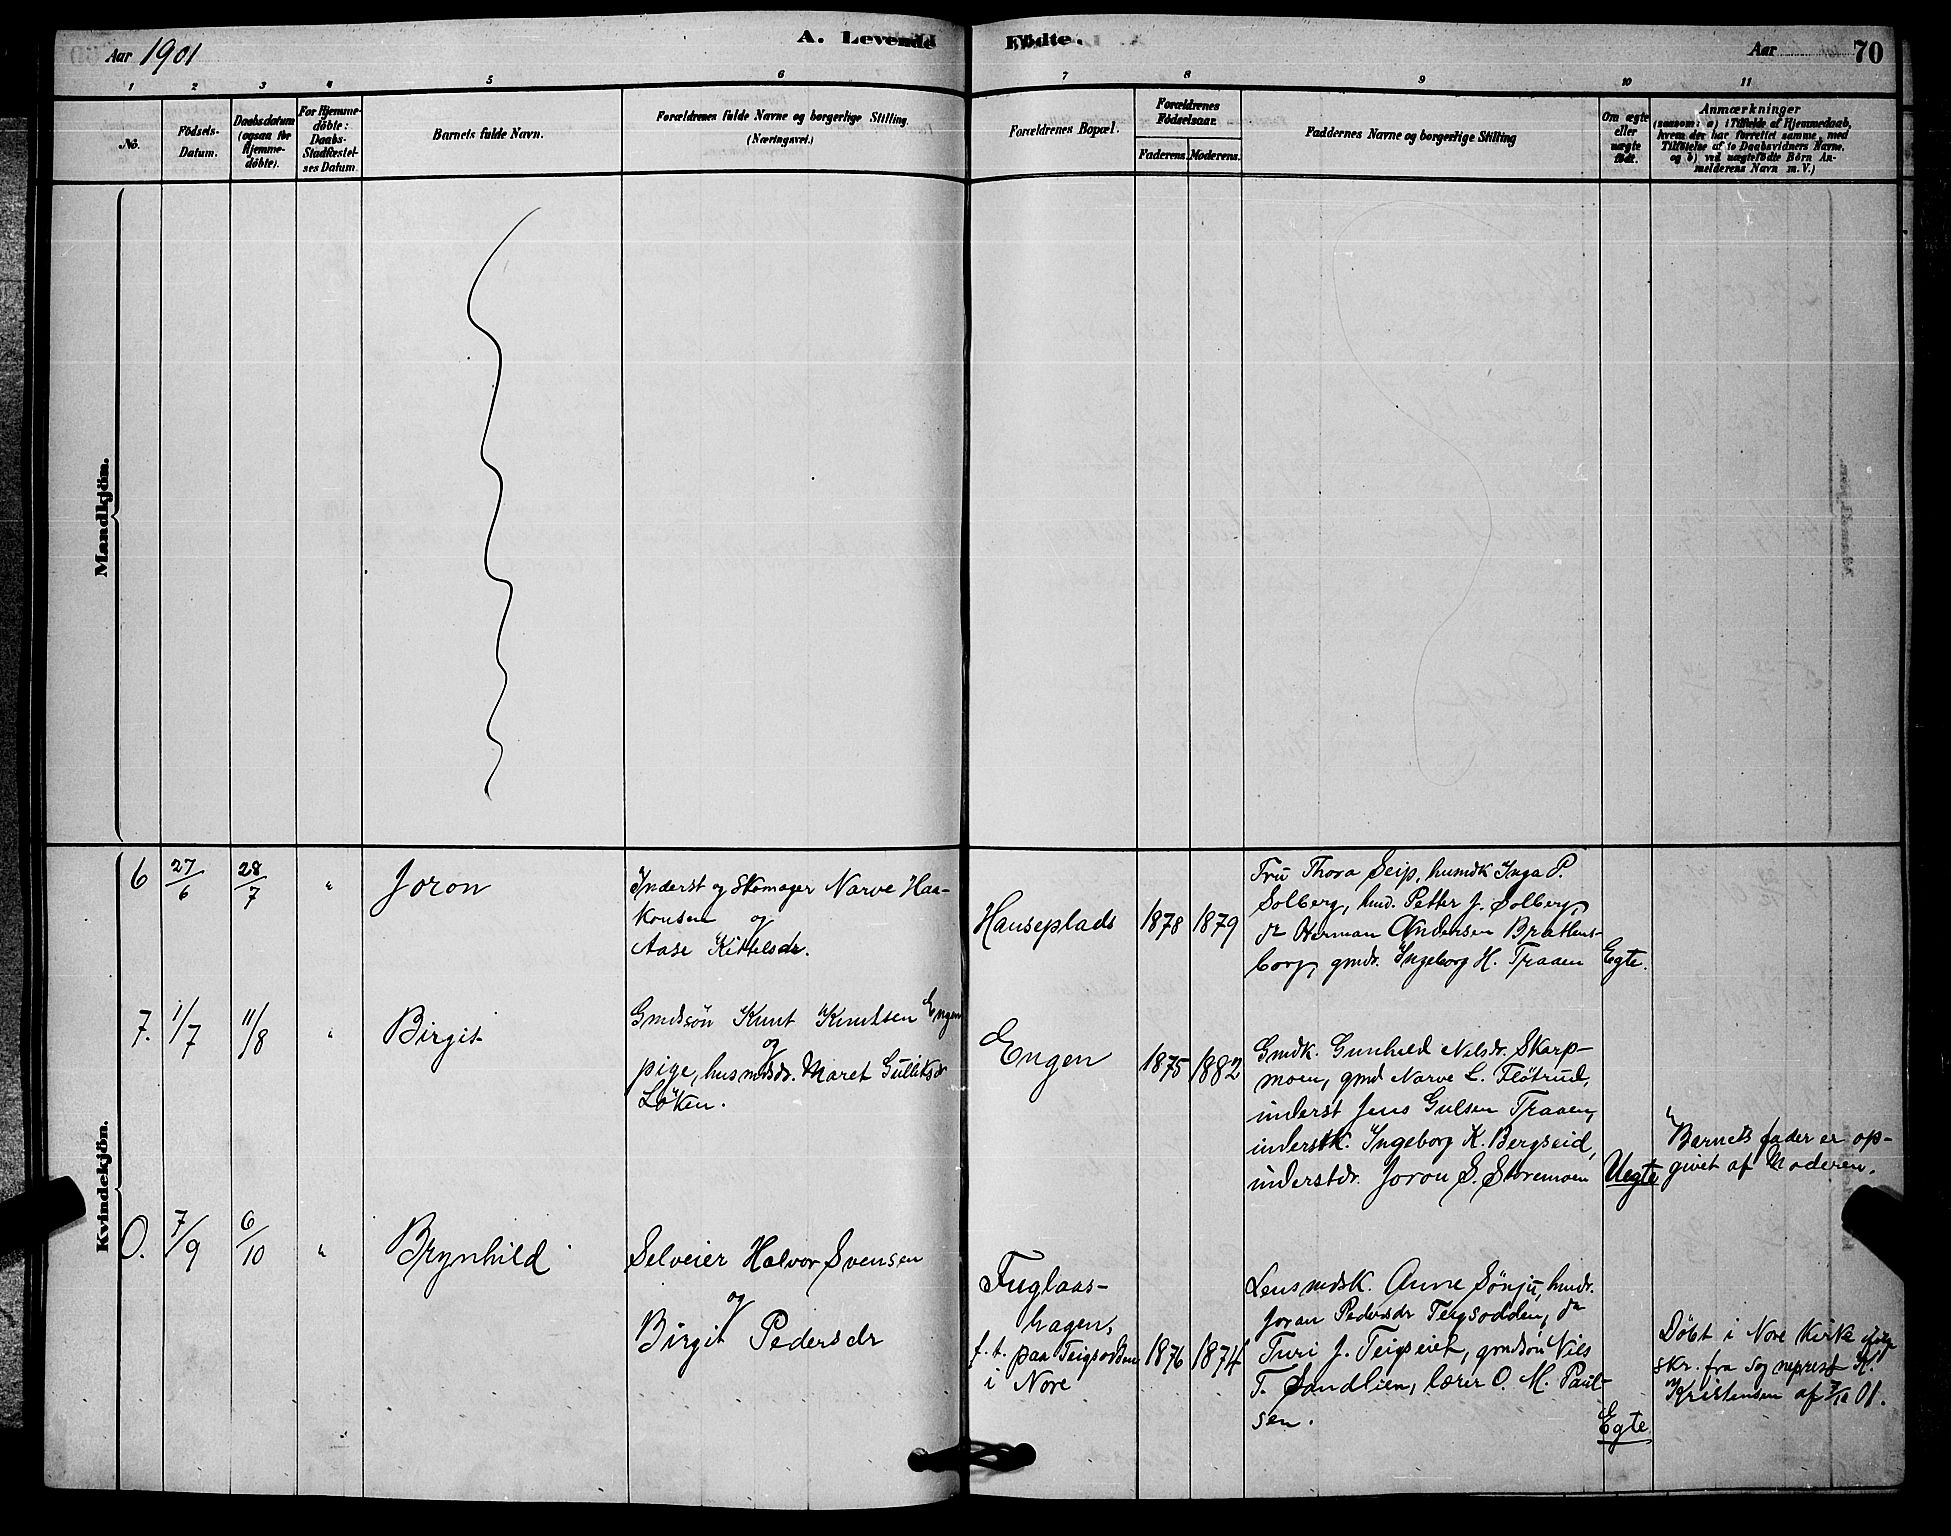 Aar 1901
A. Levende Födte.
Aar
70
1 2 3 4 5 6 7 8 9 10 11
No.
Födsels-
Datum.
Daabsdatum
(ogsaa for
Hjemme-
döbte).
For Hjemme-
döbte:
Daabs-
Stadfæstel-
ses Datum.
Barnets fulde Navn.
Forældrenes fulde Navne og borgerlige Stilling
(Næringsvei.)
Forældrenes Bopæl.
Forældrenes
Födselsaar.
Faderens. Moderens.
Faddernes Navne og borgerlige Stilling
Om ægte
eller
uægte
födt.
Anmærkninger
(saasom: a) i Tilfælde af Hjemmedaab,
hvem der har forrettet samme, med
Tilföielse af to Daabsvidners Navne,
og b) ved uægtefödte Börn An-
melderens Navn m. V.)
Mandkjön.
Kvindekjön.
6 27/6 28/7 " Joron
Inderst og Skomager Narve Haa-
konsen og
Aase Kittelsdr.
Hanseplads
1878 1879
Fru Thora Seip, husmdk Inga P.
Solberg, hmd. Petter J. Solberg,
do Herman Andersen Brattens-
borg, gmdr. Ingeborg H. Traaen
Egte.
7. 1/7 11/8 " Birgit
Gmdssön Knut Knutsen Engen
og
pige, husmdsdr. Maret Gulliksdr
Löken.
Engen
1875 1882
Gmdk. Gunhild Nilsdr. Skarp-
moen, gmd Narve L. Flötrud,
inderst Jens Gulsen Traaen,
inderstk. Ingeborg K. Bergseid,
inderstdr. Joron S. Storemoen
Uegte
Barnets fader er op-
givet af Moderen.
0. 7/9 6/10 " Brynhild
Selveier Halvor Svensen
og
Birgit Pedersdr
Fuglaas-
hagen,
f. t. paa Teigsodden
i Nore
1876 1874
Lensmdsk. Anne Sönju, hmdr.
Joran Pedersdr Teigsodden, do
Turi J. Teigseiet, gmdsön Nils
T. Sandlien, lærer O. M. Paul-
sen.
Egte
Döbt i Nore Kirke ifölge
skr. fra sogneprest K.
Kristensen af 7/10 01.